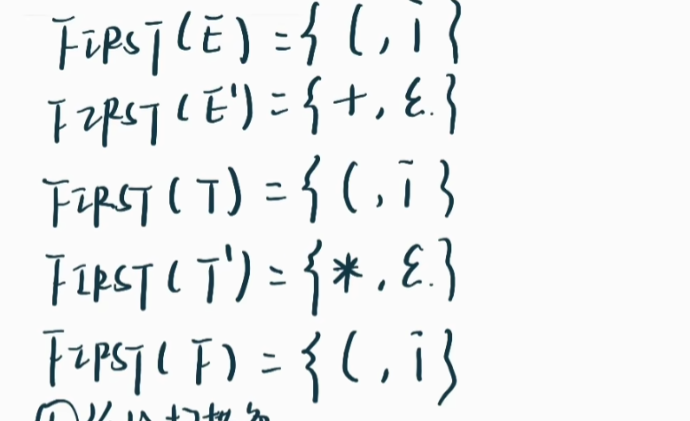 FIRST(E) = { (, i }
FIRST(E') = { +, ε. }
FIRST(T) = { (, i }
FIRST(T') = { *, ε. }
FIRST(F) = { (, i }